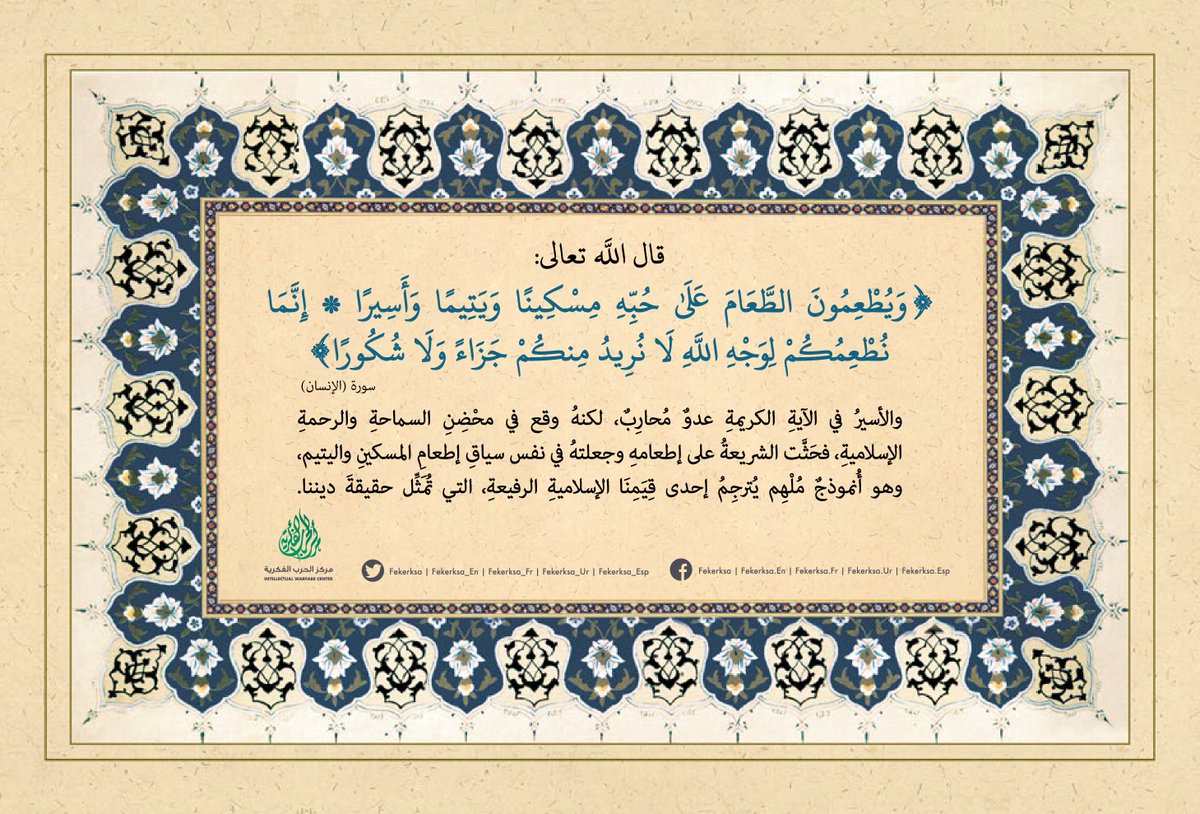 قال اللَّه تعالى:
﴿وَيُطْعِمُونَ الطَّعَامَ عَلَىٰ حُبِّهِ مِسْكِينًا وَيَتِيمًا وَأَسِيرًا * إِنَّمَا
نُطْعِمُكُمْ لِوَجْهِ اللَّهِ لَا نُرِيدُ مِنكُمْ جَزَاءً وَلَا شُكُورًا﴾
سورة (الإنسان)
والأسيرُ في الآيةِ الكريمةِ عدوٌ مُحارِبٌ، لكنهُ وقع في محْضِنِ السماحةِ والرحمةِ
الإسلاميةِ، فحَثَّت الشريعةُ على إطعامهِ وجعلتهُ في نفس سياقِ إطعامِ المسكينِ واليتيم،
وهو أُنموذجٌ مُلْهِم يُترجِمُ إحدى قِيَمِنَا الإسلاميةِ الرفيعةِ، التي تُمَثِّل حقيقةَ ديننا.
مركز الحرب الفكرية
INTELLECTUAL WARFARE CENTER
Fekerksa | Fekerksa_En | Fekerksa_Fr | Fekerksa_Ur | Fekerksa_Esp
Fekerksa | Fekerksa.En | Fekerksa.Fr | Fekerksa.Ur | Fekerksa.Esp